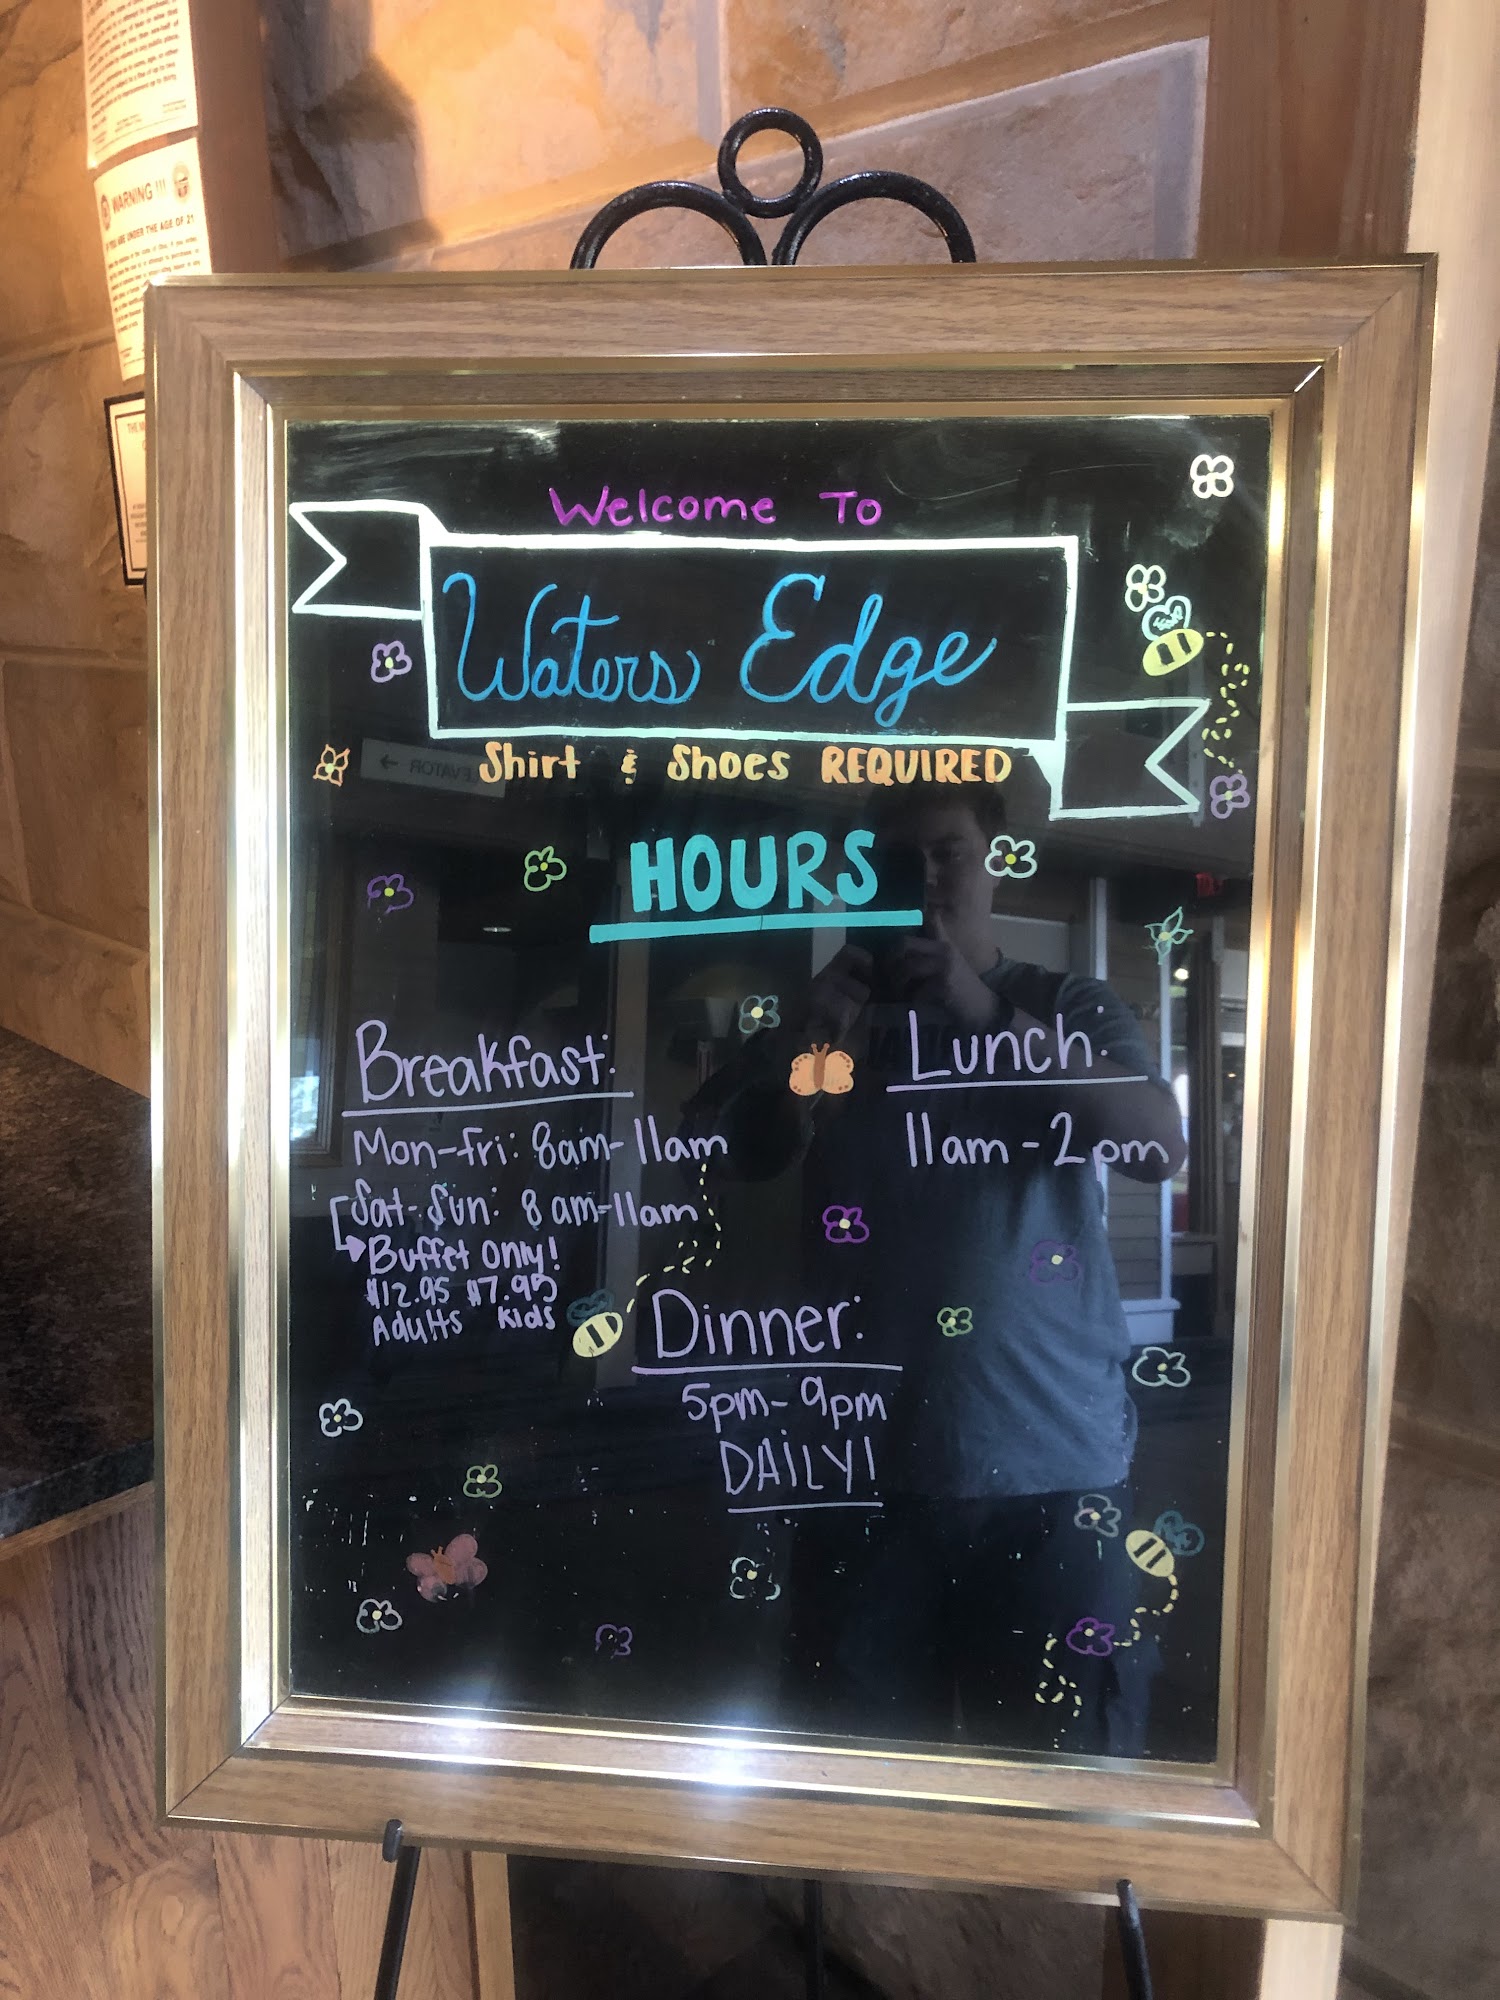 WARNING !!!
IF YOU ARE UNDER THE AGE OF 21
Welcome To
Waters Edge
Shirt & Shoes REQUIRED
HOURS
Breakfast:
Mon-Fri: 8am-11am
Sat-Sun: 8am-11am
Buffet Only!
$12.95 $7.95
Adults Kids
Lunch:
11am-2pm
Dinner:
5pm-9pm
DAILY!